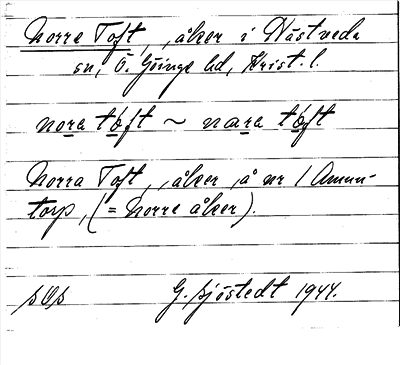 Norre Toft, åker i Nästveda
sn, Ö. Göinge hd, Krist. l.
nora tóft ~ nara tóft
Norra Toft, åker å nr 1 Amun-
torp, (= Norre åker).
sOs G. Sjöstedt 1944.